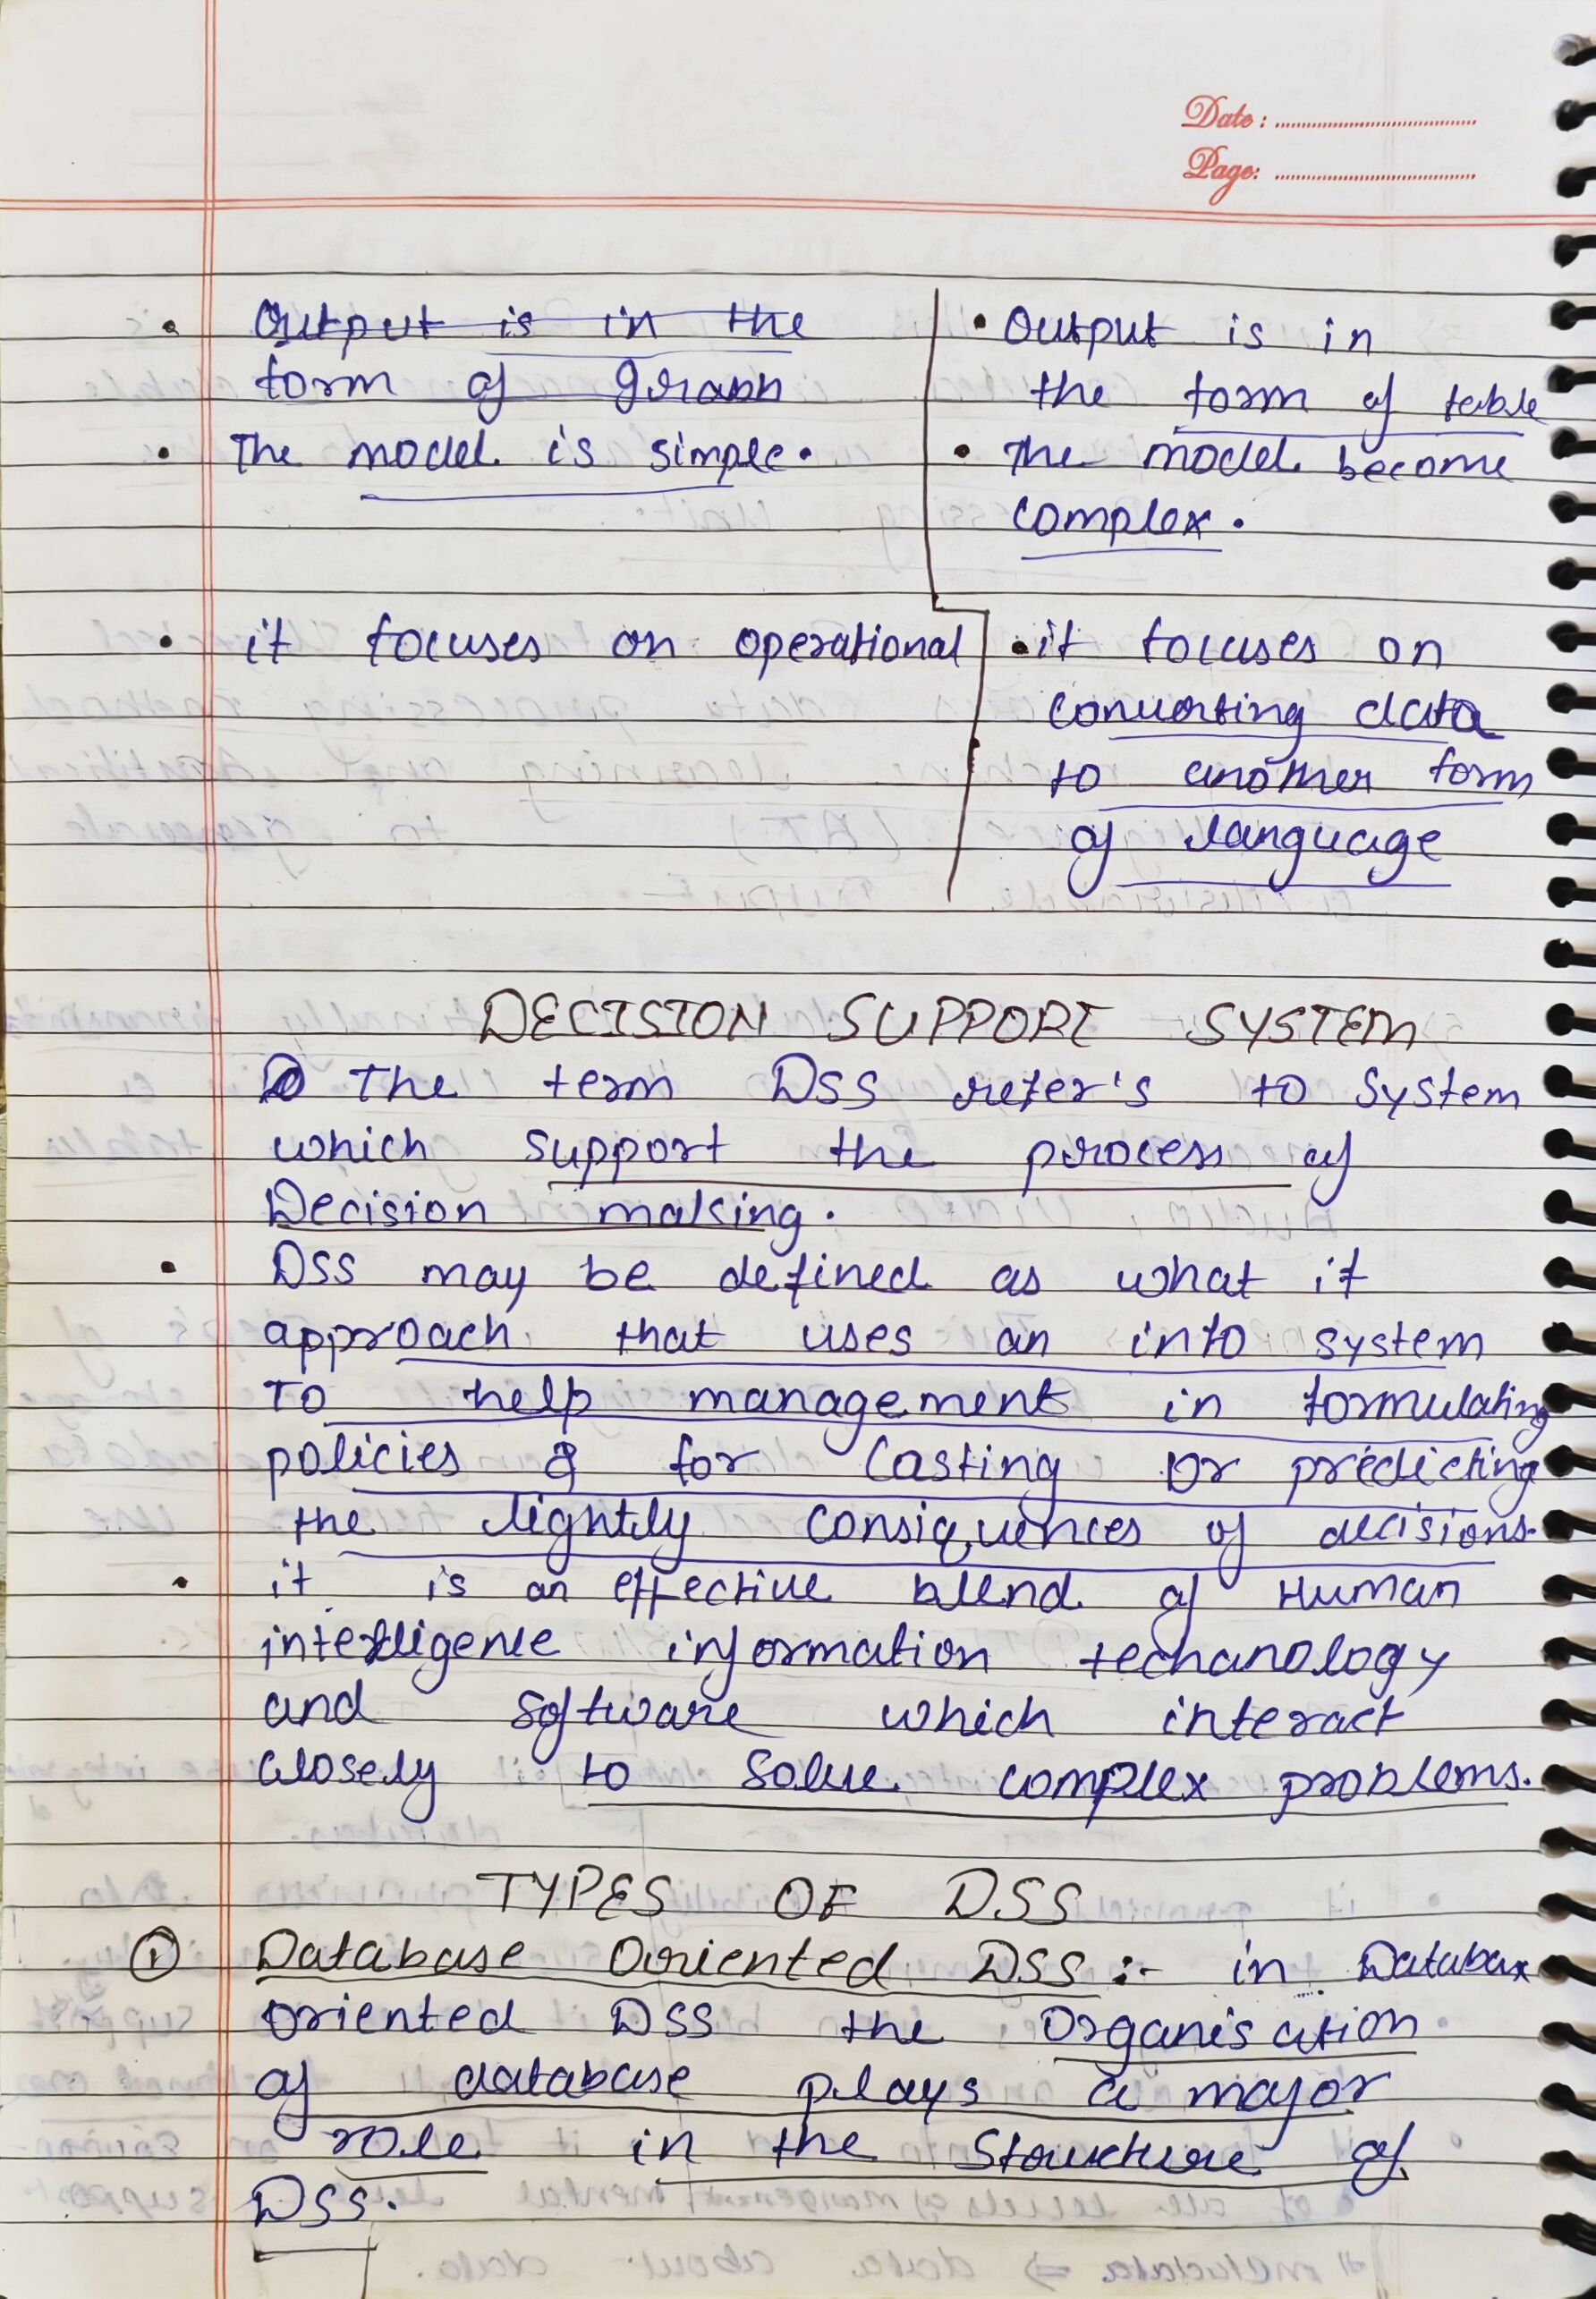 Date:
Page:
• Output is in the
form of graph
• The model is simple.
• Output is in
the form of table
• The model become
complex.
• it focuses on operational
• it focuses on
converting data
to another form
of language
DECISION SUPPORT SYSTEM
The term DSS refer's to System
which support the process of
Decision making.
• DSS may be defined as what if
approach that uses an info system
To help management in formulating
policies & for casting or predicting
the lightly consiquences of decisions.
• it is an effective blend of Human
intelligence information techanology
and software which interact
closely to solve complex problems.
TYPES OF DSS
① Database Oriented DSS :- in Database
oriented DSS the Organisation
of database plays a major
role in the Structure of
DSS.